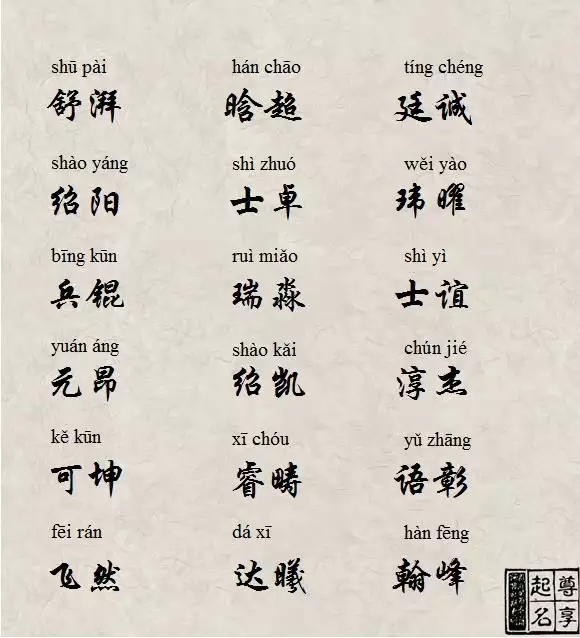 shū pài hán chāo tíng chéng
舒湃 晗超 廷诚
shào yáng shì zhuó wěi yào
绍阳 士卓 玮曜
bīng kūn ruì miǎo shì yì
兵锟 瑞淼 士谊
yuán áng shào kǎi chún jié
元昂 绍凯 淳杰
kě kūn xī chóu yǔ zhāng
可坤 睿畴 语彰
fēi rán dá xī hàn fēng
飞然 达曦 翰峰
尊享
起名